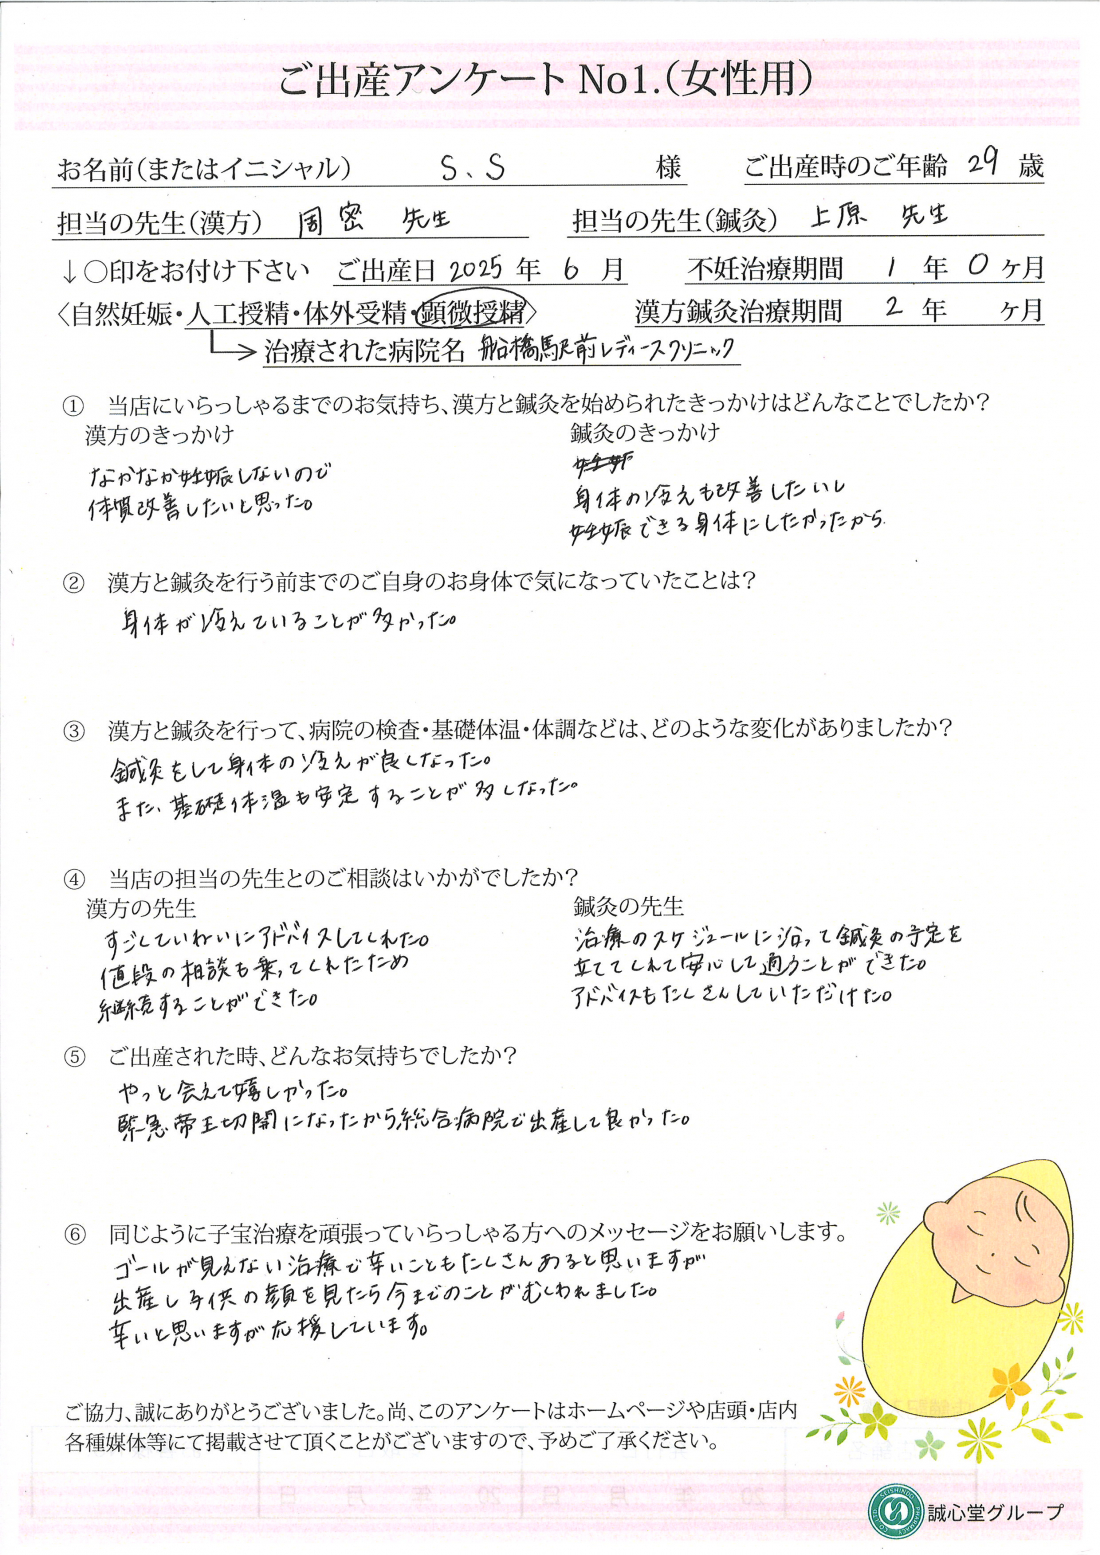 ご出産アンケート No1.（女性用）
お名前（またはイニシャル） S、S 様 ご出産時のご年齢 29 歳
担当の先生（漢方） 周密 先生 担当の先生（鍼灸） 上原 先生
↓○印をお付け下さい ご出産日 2025 年 6 月 不妊治療期間 1 年 0 ヶ月
〈自然妊娠・人工授精・体外受精・顕微授精〉 漢方鍼灸治療期間 2 年 ヶ月
治療された病院名 船橋駅前レディースクリニック
① 当店にいらっしゃるまでのお気持ち、漢方と鍼灸を始められたきっかけはどんなことでしたか？
漢方のきっかけ
なかなか妊娠しないので
体質改善したいと思った。
鍼灸のきっかけ
身体の冷えも改善したいし
妊娠できる身体にしたかったから
② 漢方と鍼灸を行う前までのご自身のお身体で気になっていたことは？
身体が冷えていることが多かった。
③ 漢方と鍼灸を行って、病院の検査・基礎体温・体調などは、どのような変化がありましたか？
鍼灸をして身体の冷えが良くなった。
また、基礎体温も安定することが多くなった。
④ 当店の担当の先生とのご相談はいかがでしたか？
漢方の先生
すごくていねいにアドバイスしてくれた。
値段の相談も乗ってくれたため
継続することができた。
鍼灸の先生
治療のスケジュールに沿って鍼灸の予定を
立ててくれて安心して通うことができた。
アドバイスもたくさんしていただけた。
⑤ ご出産された時、どんなお気持ちでしたか？
やっと会えて嬉しかった。
緊急帝王切開になったから総合病院で出産して良かった。
⑥ 同じように子宝治療を頑張っていらっしゃる方へのメッセージをお願いします。
ゴールが見えない治療で辛いこともたくさんあると思いますが
出産し子供の顔を見たら今までのことがむくわれました。
辛いと思いますが応援しています。
ご協力、誠にありがとうございました。尚、このアンケートはホームページや店頭・店内
各種媒体等にて掲載させて頂くことがございますので、予めご了承ください。
誠心堂グループ